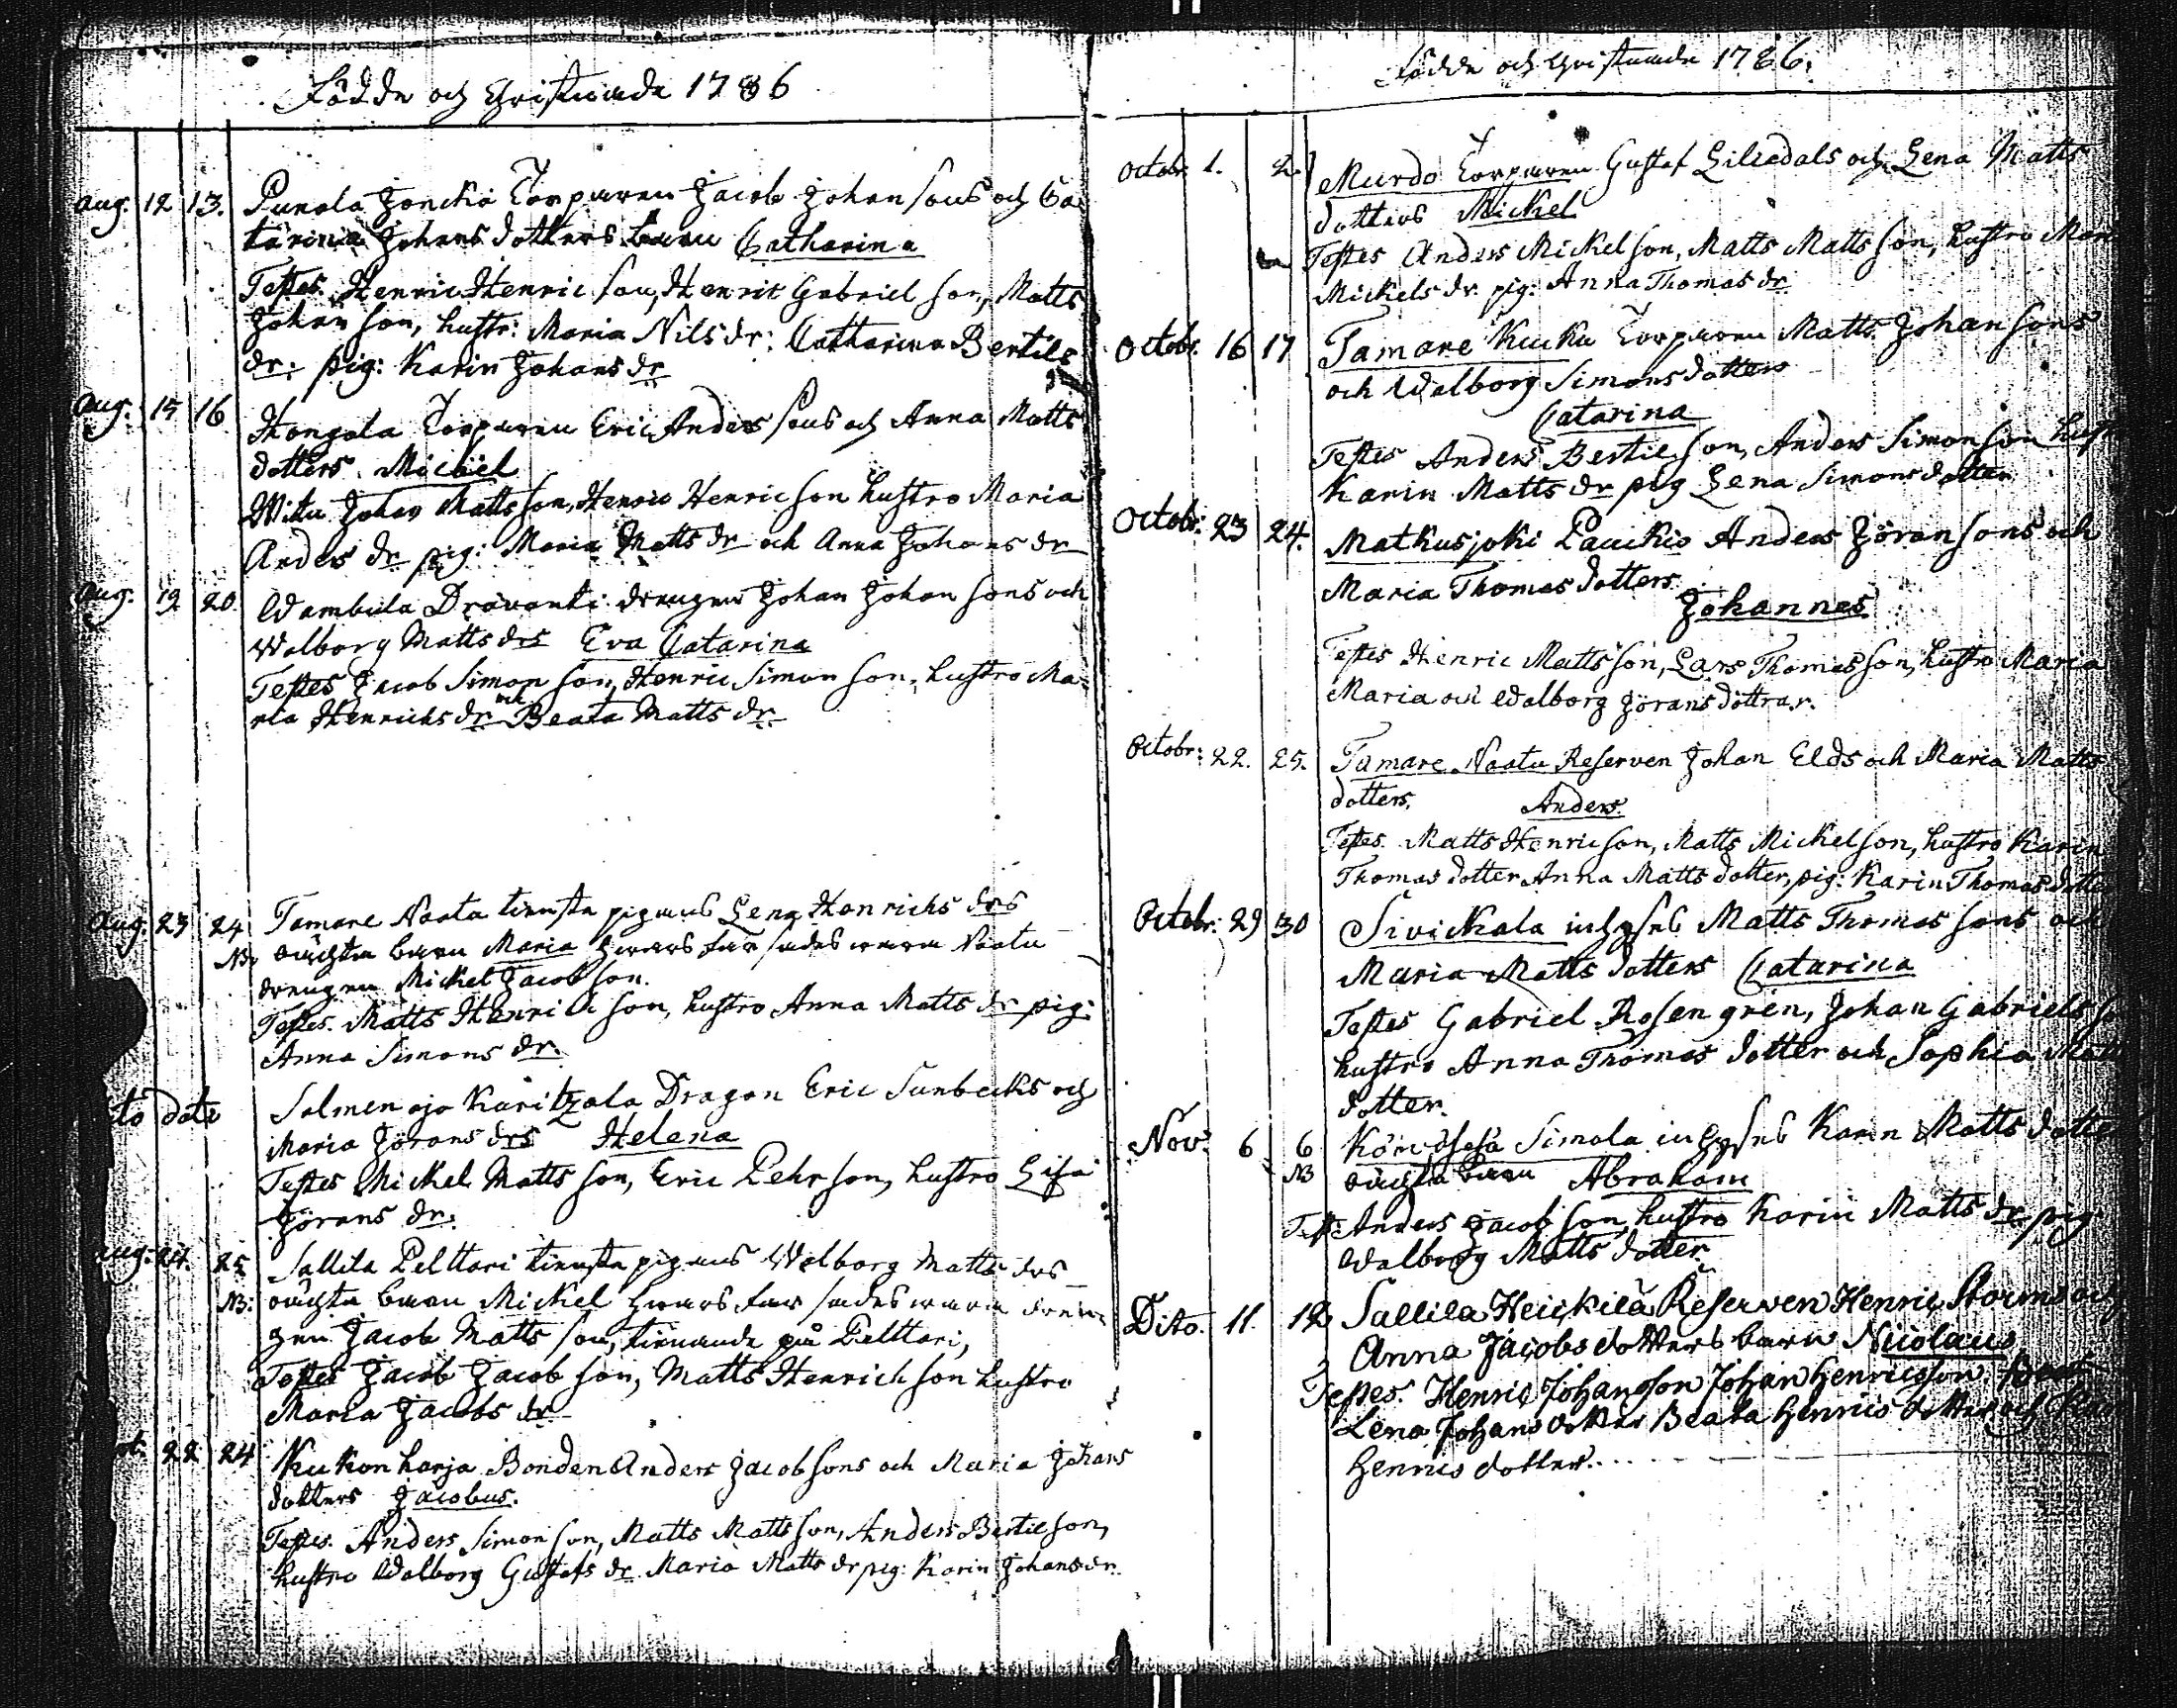 Födde och Christnade 1786
Aug. 12 13. Punola Joncka Torparen Jacob Johansons och Ca
tarina Johans dotters barn Catharina
Testes Henric Henricson, Henric Gabrielson, Matts
Johanson, hustr: Maria Nilsdr: Catharina Bertils
dr: pig: Karin Johansdr
Aug. 15 16. Hongola Torparen Eric Andersons och Anna Matts
dotters Michel
Witn Johan Mattsson, Henric Henricson hustro Maria
Anders dr pig: Maria Matts dr och Anna Johans dr
Aug. 19 20. Wambula Dravanti drengen Johan Johansons och
Walborg Matts drs Eva Catarina
Testes Jacob Simonson, Henric Simonson, hustro Ma-
ria Henrichs dr och Beata Matts dr
Aug. 23 24 Tamare Naata tiensta pigans Lena Henrichs drs
NB oächta barn Maria hwars far sades wara Naatu
drengen Mickel Jacobson.
Testes. Matts Henricson, hustro Anna Matts dr pig:
Anna Simons dr.
dato Salmenoja Karitzala Dragon Eric Sunbecks och
Maria Jörans drs Helena
Testes Mickel Mattsson, Eric Pehrson, hustro Lisa
Jörans dr.
Aug. 24. 25 Sallila Pelttari tiensta pigans Walborg Matts drs
NB: oächta barn Mickel hwars far sades wara dren-
gen Jacob Mattsson, tienande på Pelttari,
Testes Jacob Jacobson, Matts Henrichson hustro
Maria Jacobs dr
22 24 Kukonharja Bonden Anders Jacobsons och Maria Johans
dotters Jacobus.
Testes. Anders Simonson, Matts Mattsson, Anders Bertilson,
hustro Walborg Gustafs dr Maria Matts dr pig: Karin Johansdr.
Födde och Christnade 1786.
Octobr. 1. 2. Murdo Torparen Gustaf Liliedals och Lena Matts
dotters Mickel
Testes Anders Mickelson, Matts Mattsson, hustro
Mickels dr. pig: Anna Thomas dr
Octobr. 16 17 Tamare Kuka Torparen Matts Johansons
och Walborg Simonsdotters
Catarina
Testes Anders Bertilson, Anders Simonson
Karin Matts dr pig Lena Simonsdotter
Octobr. 23 24. Matkusjoki Paukio Anders Jöransons och
Maria Thomas dotters.
Johannes.
Testes Henric Mattsson, Lars Thomasson, hustro Maria
Maria och Walborg Jörans döttrar.
Octobr: 22. 25. Tamare Naatu Reserven Johan Elds och Maria Matts
dotters. Anders.
Testes. Matts Henricson, Matts Mickelson, hustro Karin
Thomas dotter Anna Matts dotter, pig: Karin Thomas dotter
Octobr: 29 30 Sivickala inhyses Matts Thomassons och
Maria Matts dotters Catarina
Testes Gabriel Rosengren, Johan Gabriels
hustro Anna Thomas dotter och Sophia
dotter.
Nov: 6 6 Simola inhyses Karin Matts
NB oächta barn Abraham
Anders Jacobson, hustro Karin Matts dr pig
Walborg Matts dotter
Dito. 11. 12 Sallila Heickilä Reserven Henric Storms och
Anna Jacobs dotters barn Nicolaus
Testes. Henric Johansson Johan Henricsson
Lena Johans dotter Beata Henrics dotter och
Henrics dotter.